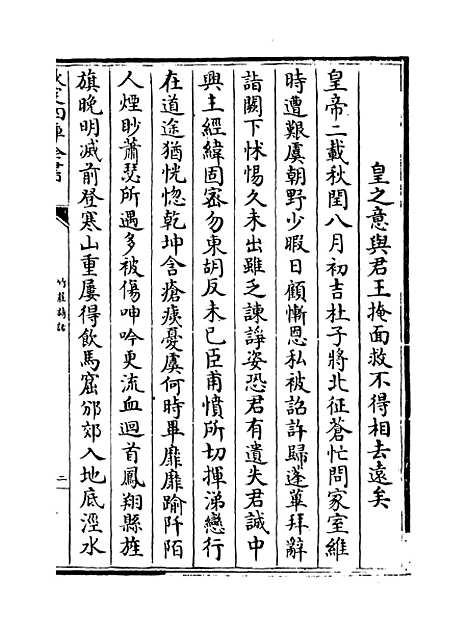 皇之意與君王掩面救不得相去遠矣
皇帝二載秋閏八月初吉杜子將北征蒼忙問家室維
時遭艱虞朝野少暇日顧慚恩私被詔許歸蓬蓽拜辭
詣闕下怵惕久未出雖乏諫諍姿恐君有遺失君誠中
興主經緯固密勿東胡反未已臣甫憤所切揮涕戀行
在道途猶恍惚乾坤含瘡痍憂虞何時畢靡靡踰阡陌
人煙眇蕭瑟所遇多被傷呻吟更流血迴首鳳翔縣旌
旗晚明滅前登寒山重屢得飲馬窟邠郊入地底涇水
欽定四庫全書
竹莊詩話
二